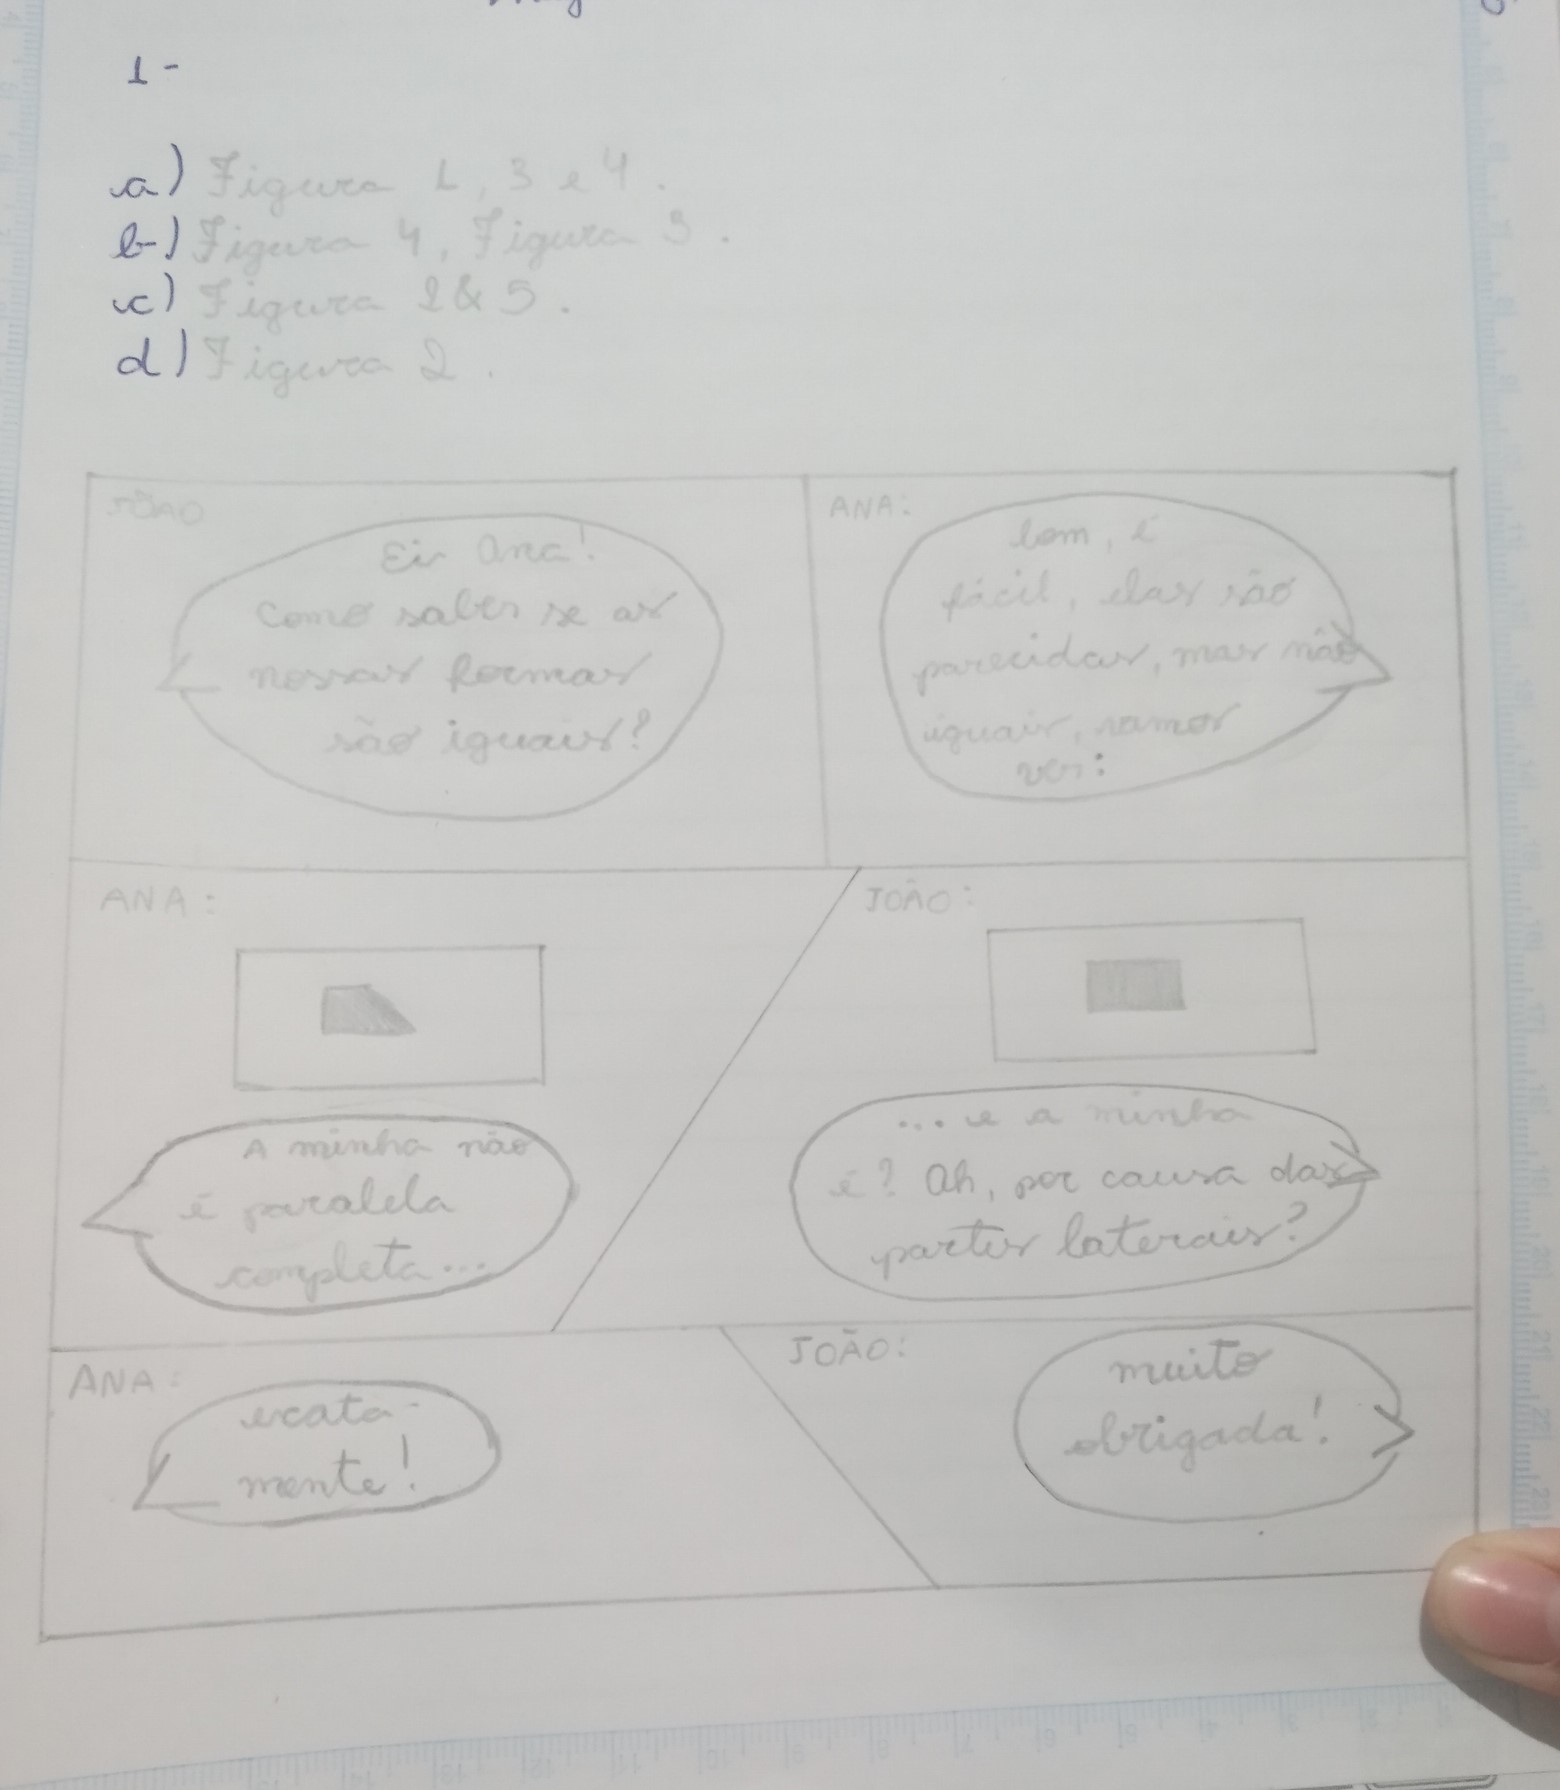 1-
a) Figura 1, 3 e 4.
b) Figura 4, Figura 3.
c) Figura 2 & 5.
d) Figura 2.
JOÃO
Ei Ana!
Como saber se as
nossas formas
são iguais?
ANA:
bom, é
fácil, elas são
parecidas, mas não
iguais, vamos
ver:
ANA:
A minha não
é paralela
completa...
JOÃO:
... e a minha
é? Ah, por causa das
partes laterais?
ANA:
exata-
mente!
JOÃO:
muito
obrigada!